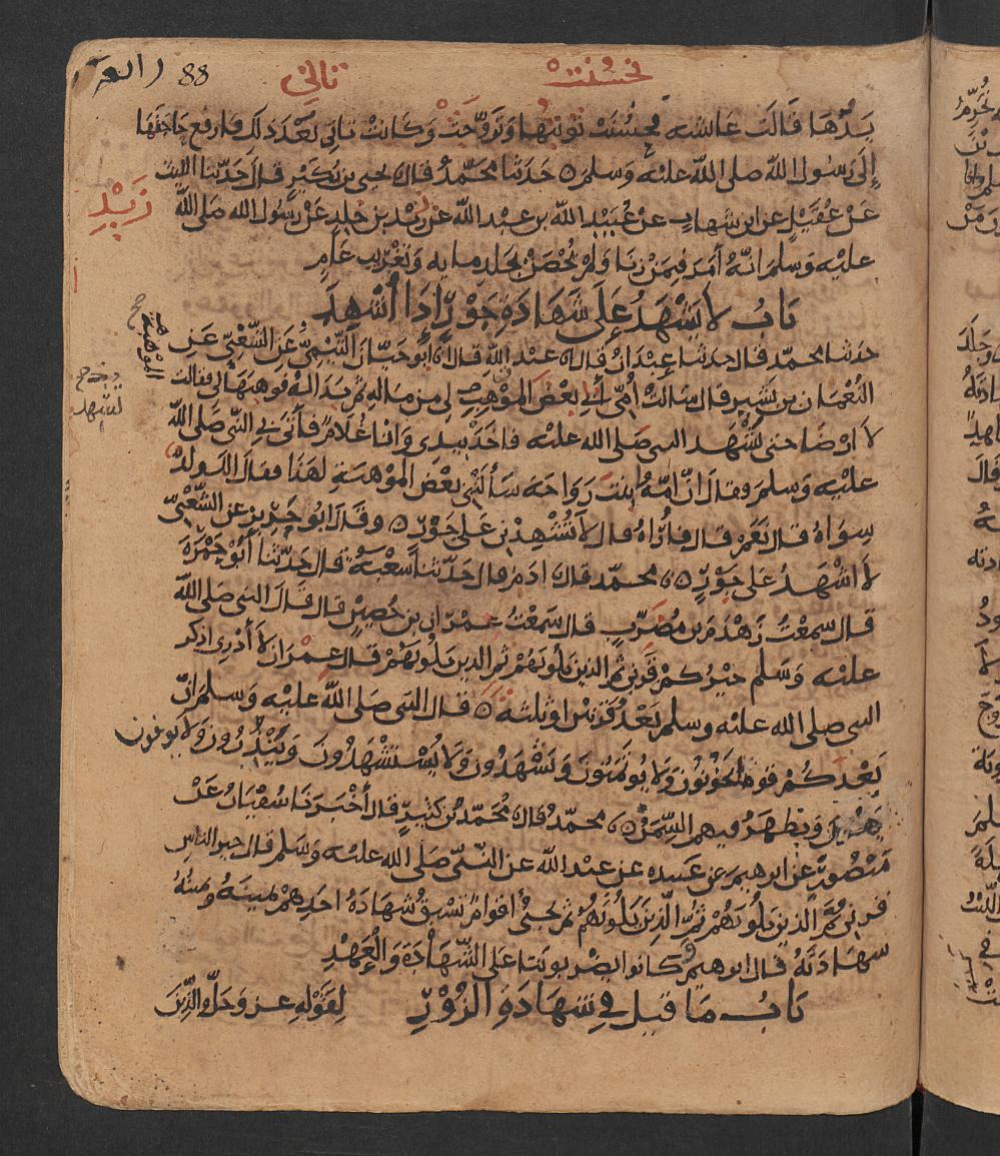 88
فحسنت
تاتي
يدها قالت عائشه فحسنت توبتها وتزوجت وكانت تاتي بعد ذلك فارفع حاجتها
إلى رسول الله صلى الله عليه وسلم ٥ حدثنا محمد قال يحيى بن بكير قال حدثنا الليث
عن عقيل عن ابن شهاب عن عبيد الله بن عبد الله عن زيد بن خلد عن رسول الله صلى الله
زيد
عليه وسلم انه أمر فيمن زنا ولم يحصن بجلد مايه وتغريب عام
باب لا يشهد على شهادة جور إذا أشهد
حدثنا محمد قال حدثنا عبدان قال عبد الله قال أبو حيان التيمي عن الشعبي عن
النعمان بن بشير قال سالت أمي أبي بعض الموهبة لي من ماله ثم بدا له فوهبها لي فقالت
الموهبة
لا ارضا حتى تشهد النبي صلى الله عليه فاخذ بيدي وانا غلام فأتى بي النبي صلى الله
عليه وسلم فقال ان امه ابنت رواحة سألتني بعض الموهبة لهذا فقال الك ولد
سواه قال نعم قال فأراه قال لا تشهدني على جور ٥ وقال ابو حريز عن الشعبي
لا اشهد على جور ٥ محمد قال ادم قال حدثنا شعبة قال حدثنا أبو جمرة
قال سمعت زهدم بن مضرب قال سمعت عمران بن حصين قال قال النبي صلى الله
عليه وسلم خيركم قرني ثم الذين يلونهم ثم الذين يلونهم قال عمران لا أدري اذكر
النبي صلى الله عليه وسلم بعد قرنين او ثلثه ٥ قال النبي صلى الله عليه وسلم ان
بعدكم قوما يخونون ولا يوتمنون ويشهدون ولا يستشهدون وينذرون ولا يوفون
ويظهر فيهم السمن ٥ محمد قال محمد بن كثير قال أخبرنا سفيان عن
منصور عن ابرهيم عن عبيده عن عبد الله عن النبي صلى الله عليه وسلم قال خير الناس
قرني ثم الذين يلونهم ثم الذين يلونهم ثم يجئ أقوام تسبق شهادة احدهم يمينه ويمينه
شهادته قال ابرهيم وكانوا يضربوننا على الشهادة والعهد
باب ما قيل في شهادة الزور لقوله عز وجل والذين